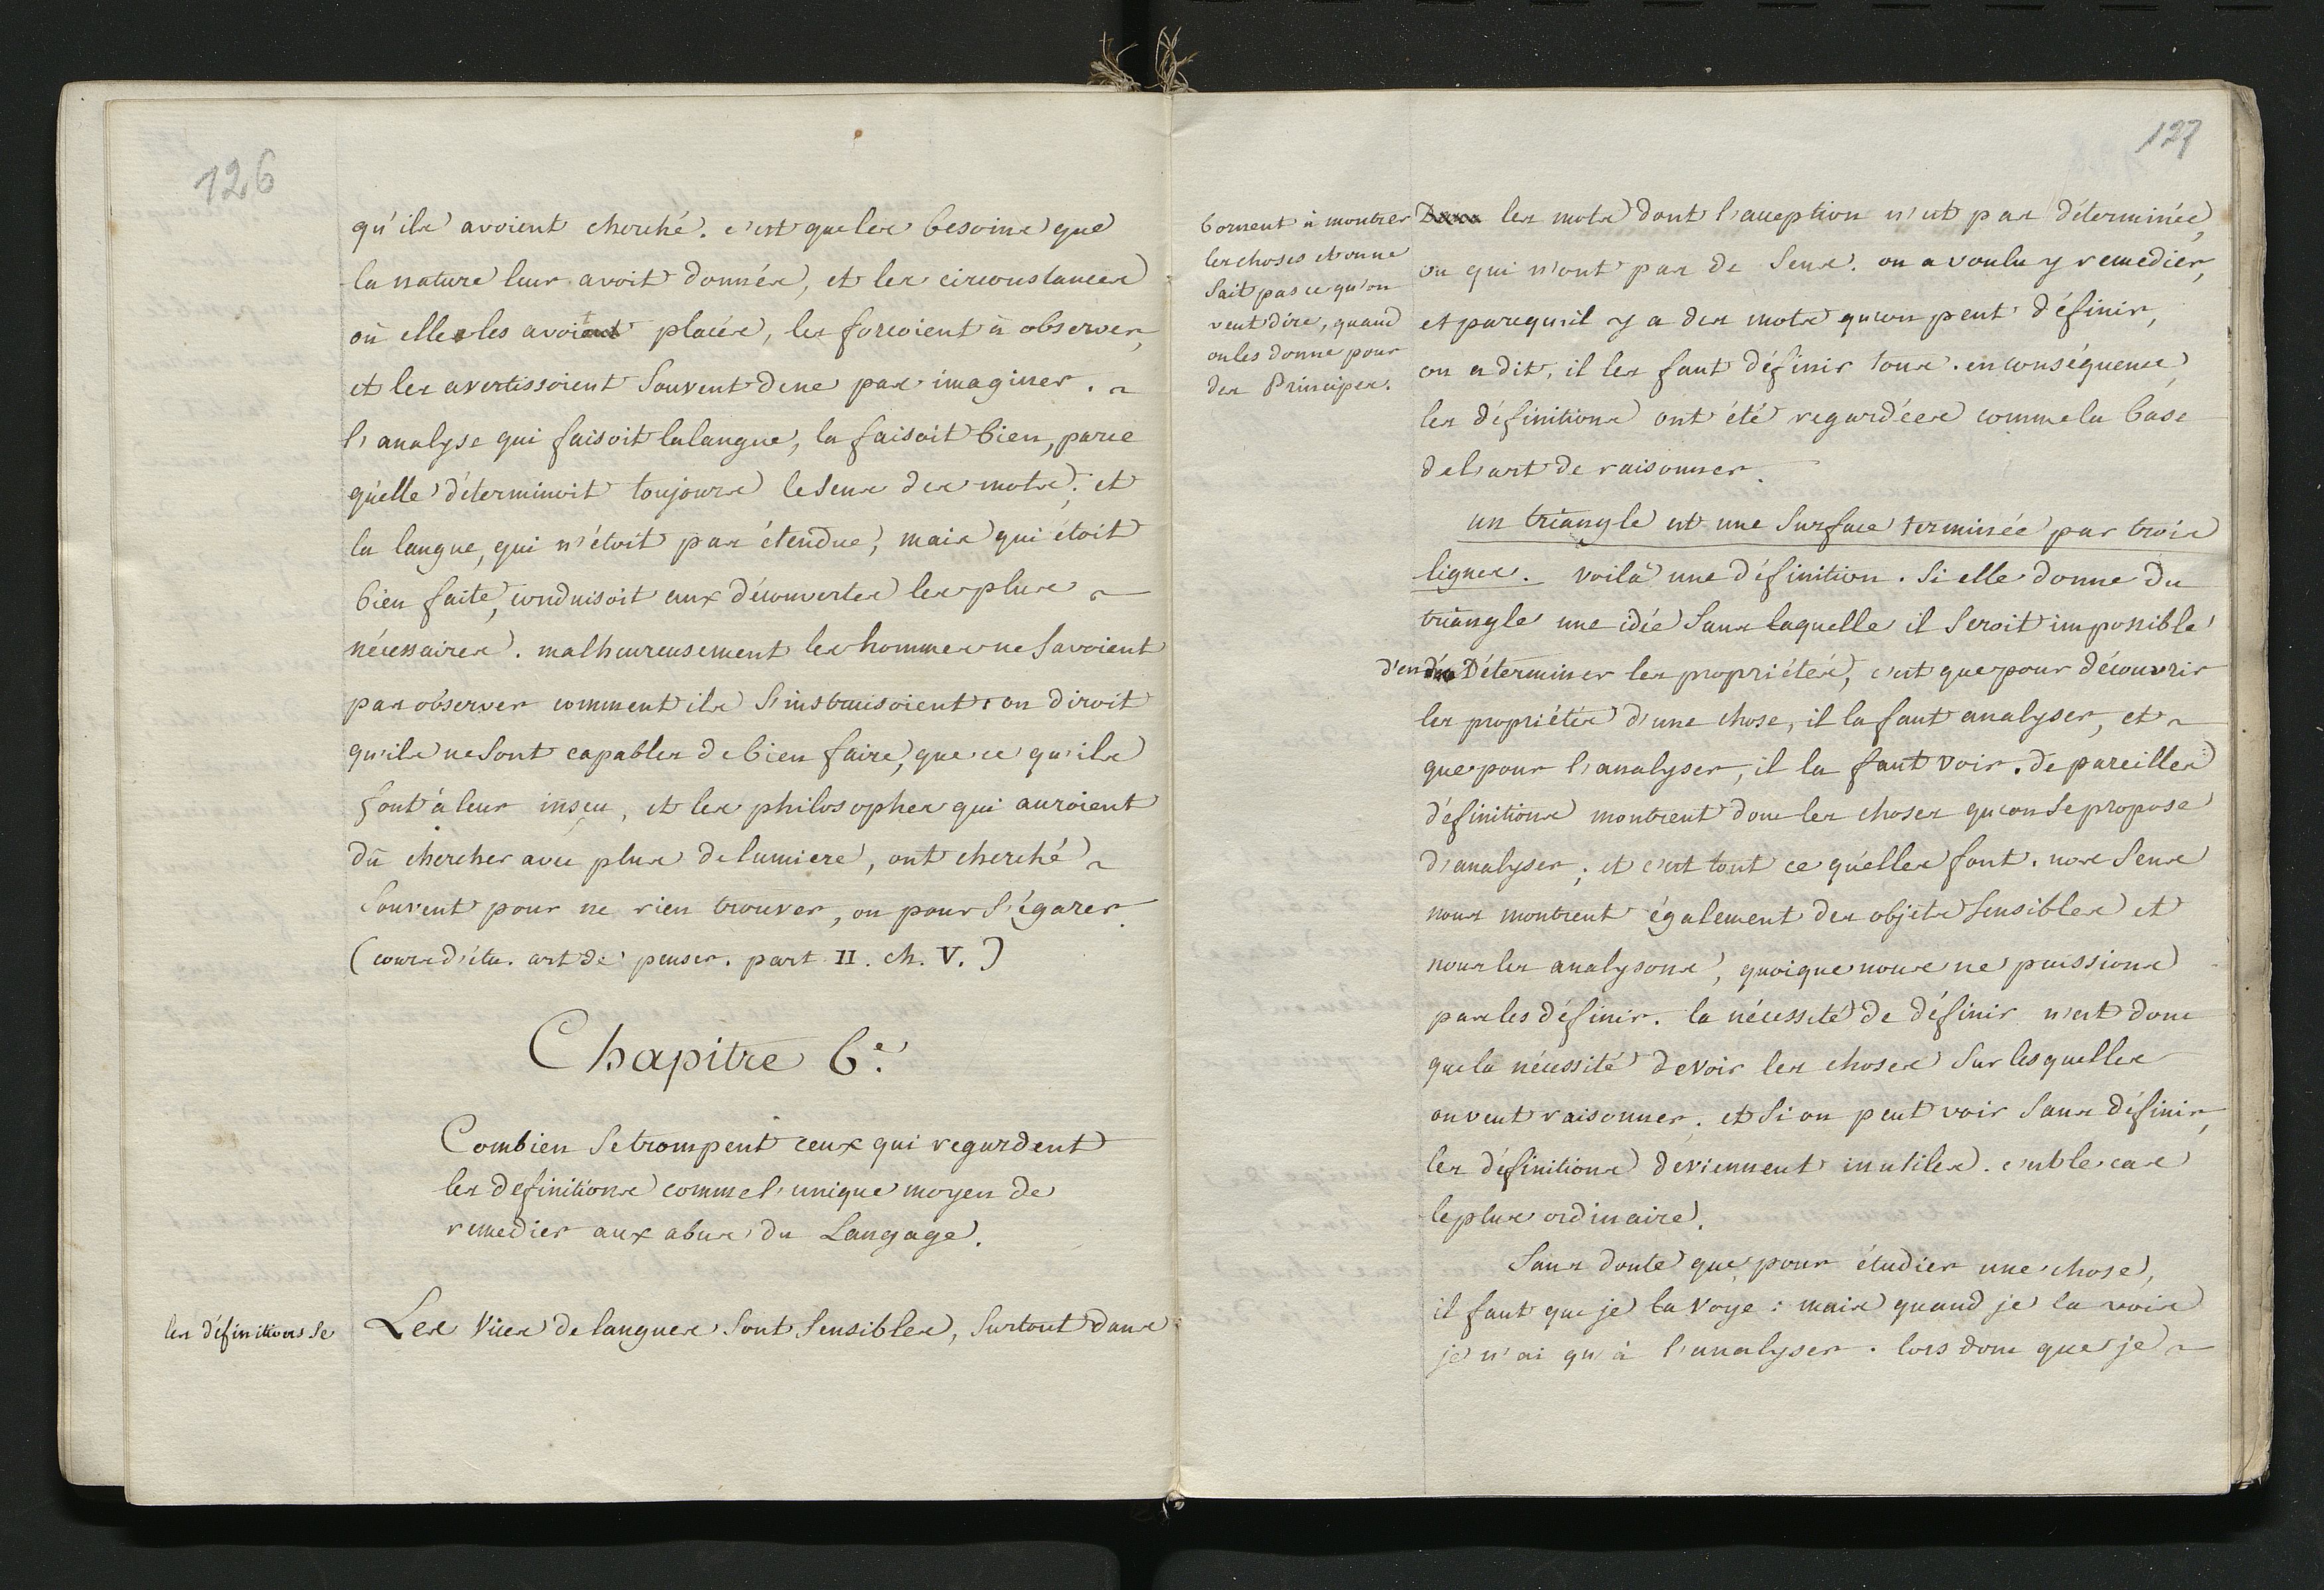 126
qu'ils avoient cherché. c'est que les besoins que
la nature leur avoit donnés, et les circonstances
où elle les avoit placés, les forcoient à observer,
et les avertissoient souvent de ne pas imaginer.
l'analyse qui faisoit la langue, la faisoit bien, parce
qu'elle déterminoit toujours le sens des mots; et
la langue, qui n'étoit pas étendue, mais qui étoit
bien faite, conduisoit aux découvertes les plus
nécessaires. malheureusement les hommes ne savoient
pas observer comment ils s'instruisoient: on diroit
qu'ils ne sont capables de bien faire, que ce qu'ils
font à leur insçu, et les philosophes qui auroient
dû chercher avec plus de lumiere, ont cherché
souvent pour ne rien trouver, ou pour s'égarer.
(cours d'étu. art de penser. part II. ch. V.)
Chapitre 6.e
Combien se trompent ceux qui regardent
les definitions comme l'unique moyen de
remedier aux abus du Langage.
les définitions se
Les vices de langues sont sensibles, surtout dans
127
bornent à montrer
les choses et on ne
sait pas ce qu'on
veut dire, quand
on les donne pour
des Principes.
les mots dont l'acception n'est pas déterminée,
ou qui n'ont pas de sens. on a voulu y remedier,
et parcequ'il y a des mots qu'on peut définir,
on a dit, il les faut définir tous. en conséquence,
les définitions ont été regardées comme la base
de l'art de raisonner.
un triangle est une surface terminée par trois
lignes. voilà une définition. si elle donne du
triangle une idée sans laquelle il seroit impossible
d'en Déterminer les propriétés, c'est que pour découvrir
les propriétés d'une chose, il la faut analyser, et
que pour l'analyser, il la faut voir. de pareilles
définitions montrent donc les choses qu'on se propose
d'analyser; et c'est tout ce qu'elles font. nos sens
nous montrent également des objets sensibles et
nous les analysons, quoique nous ne puissions
pas les définir. la nécessité de définir n'est donc
que la nécessité de voir les choses sur lesquelles
on veut raisonner. et si on peut voir sans définir,
les définitions deviennent inutiles. c'est le cas
le plus ordinaire.
Sans doute que pour étudier une chose,
il faut que je la voye: mais quand je la vois
je n'ai qu'à l'analyser. lors donc que je